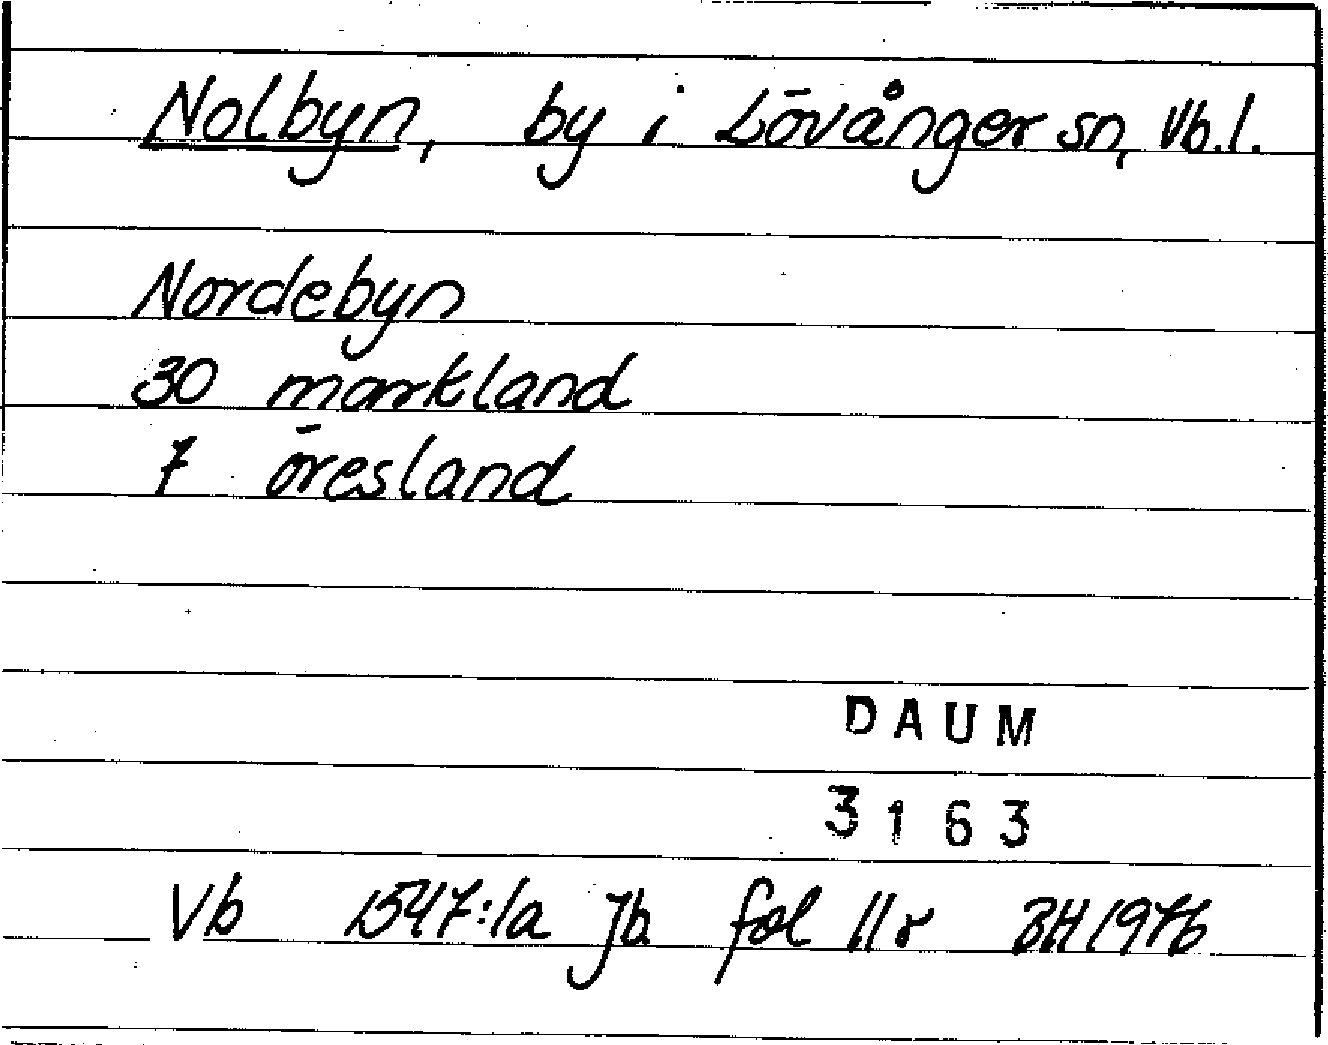 Nolbyn, by i Lövånger sn, Vb.l.
Nordebyn
30 markland
7 öresland
DAUM
3163
Vb 1547:1a Jb fol 11r BH 1976